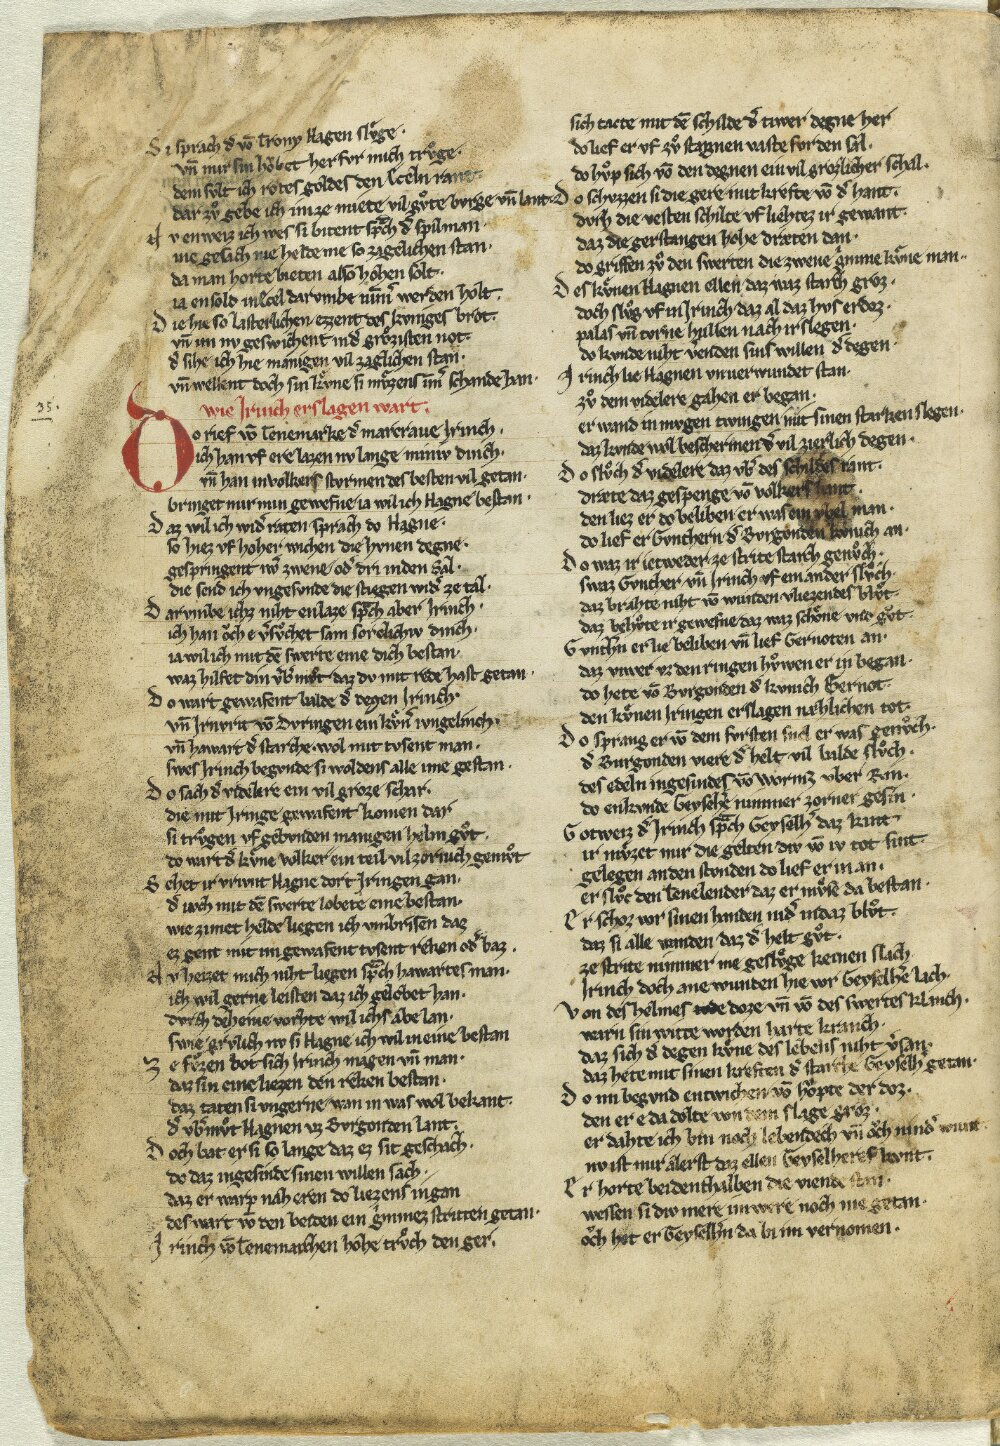 Si sprach d͛ vō Trony Hagen slůge·
vn̄ mir sin hǒbet her fvr mich trůge·
dem fvlt ich rotes goldes den Etzeln rant
dar zů gebe ich im ze miete vil gůte bvrge vn̄ lant·
Nv enweiz ich wes si bitent sp͛ch d͛ spilman·
ine gesach nie helde me so zagelichen stan·
da man horte bieten also hohen solt·
ia ensold in Etzel darvmbe nim͛ werden holt·
Die hie so lasterlichen ezzent des kvniges brot·
vn̄ im nv geswichent in d͛ grǒzisten not·
d͛ sihe ich hie manigen vil zaglichen stan·
vn̄ wellent doch sin kv̊ne si mv̊zens im͛ schande han·
35·
wie Jrinch erslagen wart·
Do rief vō Tenemarke d͛ marcraue Jrinch·
ich han vf ere lazen nv lange miniv dinch·
vn̄ han in volkers stvrmen des besten vil getan·
bringet mir min gewefne ia wil ich Hagne bestan·
Daz wil ich wid͛ raten sprach do Hagne·
so hiez vf hoher wichen die hvnen degne·
gespringent iwͬ zwene od͛ dri in den sal·
die send ich vngesunde die stiegen wid͛ ze tal·
Darvmbe ichz niht enlaze sp͛ch aber Jrinch·
ich han ǒch e v͛sv̊chet sam sorclichiv dinch·
ia wil ich mit dē swerte eine dich bestan·
waz hilfet din v̊b͛mv̊t daz dv mit rede hast getan·
Do wart gewafent balde d͛ degen Jrinch·
vn̄ Jrnvrit vō Dvringen ein kv̊n͛ ivngelinch·
vn̄ hawart d͛ starche· wol mit tvsent man·
swes Jrinch begvnde si woldens alle ime gestan·
Do sach d͛ videlere ein vil groze schar·
die mit Jringe gewafent komen dar
si trůgen vf gebvnden manigen helm gv̊t·
do wart d͛ kv̊ne volker ein teil vil zornich gemv̊t
Sehet ir vrivnt Hagne dort Jringen gan·
d͛ ivch mit dē swerte lobete eine bestan·
wie zimet helde liegen ich vmbrisen daz
ez gent mit im gewafent tvsent reken od͛ baz·
Nv heizet mich niht liegen sp͛ch hawartes man·
ich wil gerne leisten daz ich gelobet han·
dvrch deheine vorhte wil ichs abe lan·
swie grvlich nv si Hagne ich wil in eine bestan
Ze fv̊zen bot sich Jrinch magen vn̄ man·
daz sin eine liezen den reken bestan·
daz taten si vngerne· wan in was wol bekant·
d͛ v̊b͛mv̊t Hagnen vz Bvrgonden lant·
Doch bat er si so lange daz ez sit geschach·
do daz ingesinde sinen willen sach·
daz er warp nah eren do liezens in gan
des wart vō den beiden ein gͥmmez stritten getan·
Jrinch vō Tenemarchen hohe trv̊ch den ger·
sich tacte mit dē schilde d͛ tiwer degne her
do lief er vf zv̊ stagnen vaste fvr den sal·
do hv̊p sich vō den degnen ein vil grozlicher schal·
Do schvzzen si die gere mit krefte vō d͛ hant·
dvrh die vesten schilte vf liehtez ir gewant·
daz die gerstangen hohe dræten dan·
do griffen zv̊ den swerten die zwene gͥmme kv̊ne man·
Des kv̊nen Hagnen ellen daz waz starch groz·
doch slv̊g vf in Jrinch daz al daz hvs erdoz·
palas vn̄ tvrne hullen nach ir slegen·
do kvnde niht venden sins willen d͛ degen·
Jrinch lie Hagnen vnuerwundet stan·
zv̊ dem videlere gahen er began·
er wand in mvgen twingen mit sinen starken slegen·
daz kvnde wol beschermen d͛ vil zierlich degen·
Do slv̊ch d͛ videlere daz vb͛ des schildes rant·
dræte daz gespenge vō volkers hant·
den liez er do beliben er was ein vbel man·
do lief er Gvnthern d͛ Bvrgonden kvnich an·
Do waz ir ietweder ze strite starch genv̊ch·
swaz Gvnther vn̄ Jrinch vf ein ander slv̊ch·
daz brahte niht vō wunden vliezendes blv̊t·
daz behv̊te ir gewefne daz waz schǒne vnd gv̊t·
Gvnthn̄ er lie beliben vn̄ lief Gernoten an·
daz viwer vz den ringen hv̊wen er in began·
do hete vō Bvrgonden d͛ kvnich Gernot·
den kv̊nen Jringen erslagen næhlichen tot·
Do sprang er vō dem fvrsten snel er was genv̊ch·
d͛ Burgonden viere d͛ helt vil balde slv̊ch·
des edeln ingesindes vō wormz vber Rin·
do enkvnde Geyselh͛ nimmer zorner gesin·
Gotweiz d͛ Jrinch sp͛ch Geyselh͛ daz kint
ir mv̊zet mir die gelten div vō iv tot sint·
gelegen an den stvnden do lief er in an·
er slv̊c den Tenelender daz er mv̊se da bestan·
Er schoz vor sinen handen nid͛ in daz blv̊t·
daz si alle wanden daz d͛ helt gv̊t·
ze strite nimmer me geslv̊ge keinen slach
Jrinch doch ane wunden hie vor Geyselhe͛ lach·
Von des helmes doze vn̄ vō des swertes klanch·
warn sin witze worden harte kranch·
daz sich d͛ degen kv̊ne des lebens niht v͛san·
daz hete mit sinen kreften d͛ starche Geyselh͛ getan·
Do im begvnd entwichen vō hǒpte der doz·
den er e da dolte von dem slage groz·
er dahte ich bin noch lebendech vn̄ ǒch nind͛ wunt
nv ist mir alerst daz ellen Geyselheres kvnt·
Er horte beidenthalben die viende stan·
wessen si div mere im were noch me getan·
ǒch het er Geyselhn̄ da bi im vernomen·